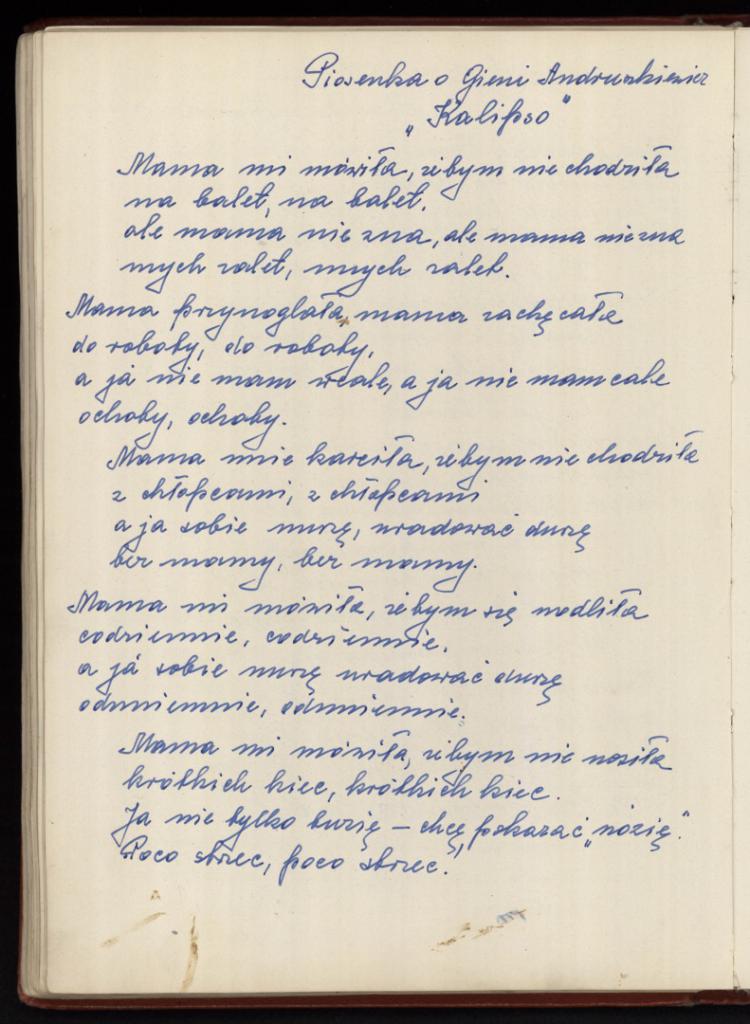 Piosenka o Gieni Andrunkiewicz
„Kalipso"
Mama mi mówiła, żebym nie chodziła
na balet, na balet,
ale mama nie zna, ale mama nie zna
mych zalet, mych zalet.
Mama przynaglała, mama zachęcała
do roboty, do roboty,
a ja nie mam wcale, a ja nie mam cale
ochoty, ochoty.
Mama mnie karciła, żebym nie chodziła
z chłopcami, z chłopcami
a ja sobie muszę, uradować duszę
bez mamy, bez mamy.
Mama mi mówiła, żebym się modliła
codziennie, codziennie,
a ja sobie muszę uradować duszę
odmiennie, odmiennie.
Mama mi mówiła, żebym nie nosiła
krótkich kiec, krótkich kiec.
Ja nie tylko buzię – chcę pokazać „nózię".
Poco strzec, poco strzec!